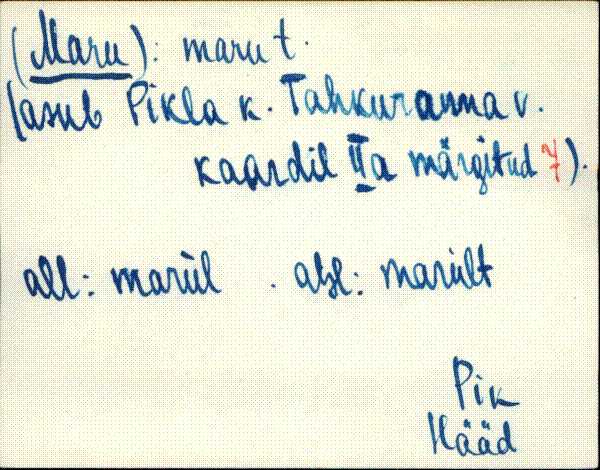 (Maru): maru t.
(asub Pikla k. Tahkuranna v.
kaardil IIa märgitud 7).
all: marul . abl: marult
Pik
Hääd